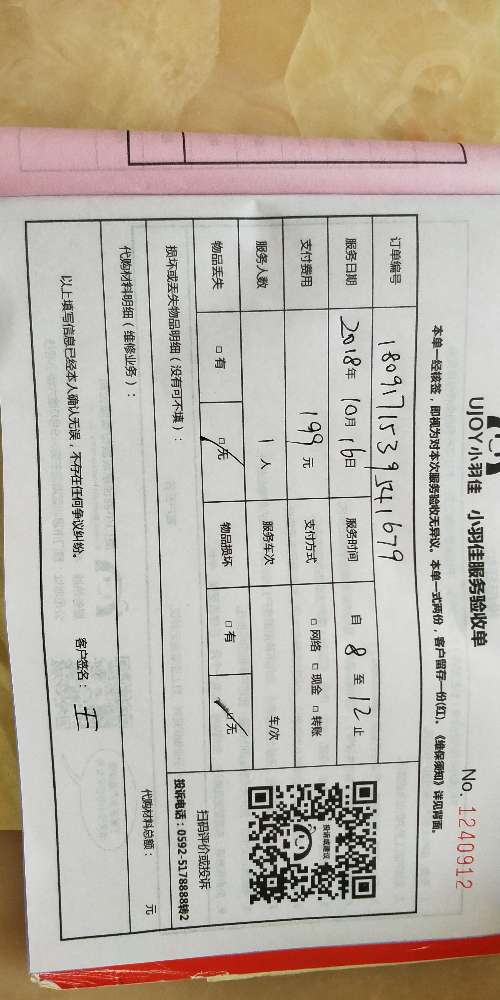 UJOY小羽佳 小羽佳服务验收单
No. 1240912
本单一经核签，即视为对本次服务验收无异议。本单一式两份，客户留存一份(红)。《维保须知》详见背面。
订单编号 1809171539541679
服务日期 2018年 10月 16日 服务时间 自 8 至 12 止
支付费用 199 元 支付方式 □ 网络 □ 现金 □ 转账
服务人数 1 人 服务车次 车/次
物品丢失 □ 有 □ 无 物品损坏 □ 有 □ 无
损坏或丢失物品明细（没有可不填）：
代购材料明细（维修业务）：
代购材料总额： 元
以上填写信息已经本人确认无误，不存在任何争议纠纷。 客户签名：
投诉或建议
扫码评价或投诉
投诉电话：0592-5178888转2